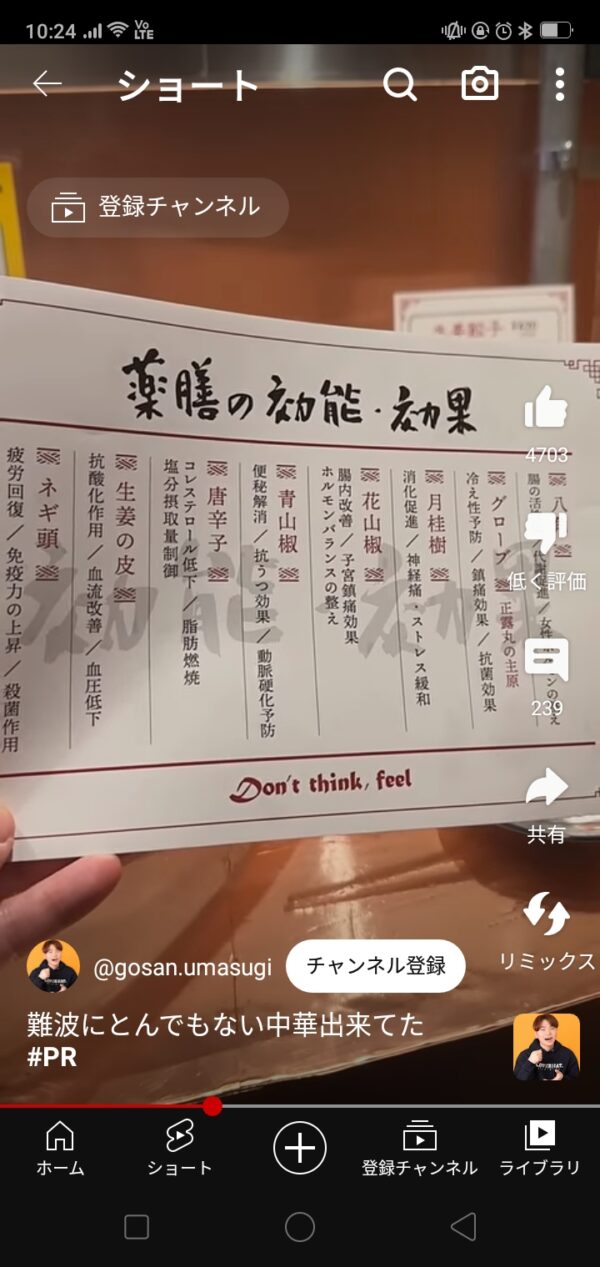 10:24
Vo
LTE
ショート
登録チャンネル
薬膳の効能・効果
グローブ
正露丸の主原
冷え性予防/鎮痛効果/抗菌効果
月桂樹
消化促進/神経痛・ストレス緩和
花山椒
腸内改善/子宮鎮痛効果
ホルモンバランスの整え
青山椒
便秘解消/抗うつ効果/動脈硬化予防
唐辛子
コレステロール低下/脂肪燃焼
塩分摂取量制御
生姜の皮
抗酸化作用/血流改善/血圧低下
ネギ頭
疲労回復/免疫力の上昇/殺菌作用
効能・効果
Don't think, feel
4703
低く評価
239
共有
リミックス
@gosan.umasugi
チャンネル登録
難波にとんでもない中華出来てた
#PR
ホーム
ショート
登録チャンネル
ライブラリ